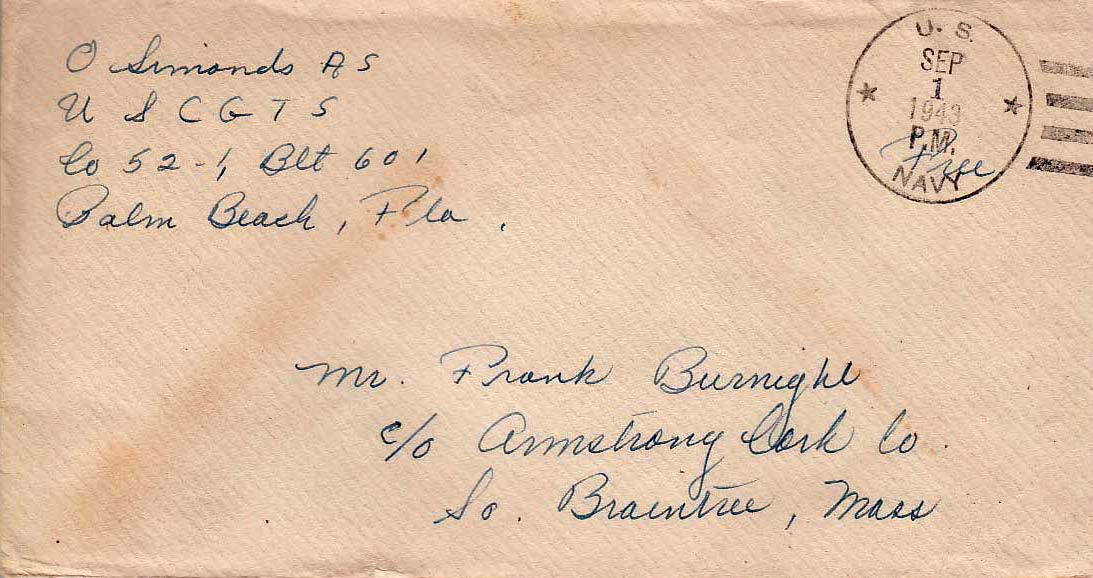 O Simonds A S
U S C G T S
Co 52-1, Blt 601
Palm Beach, Fla.
U. S.
SEP
1
1943
P.M.
Free
NAVY
Mr. Frank
c/o Armstrong Cork Co.
So. Braintree, Mass